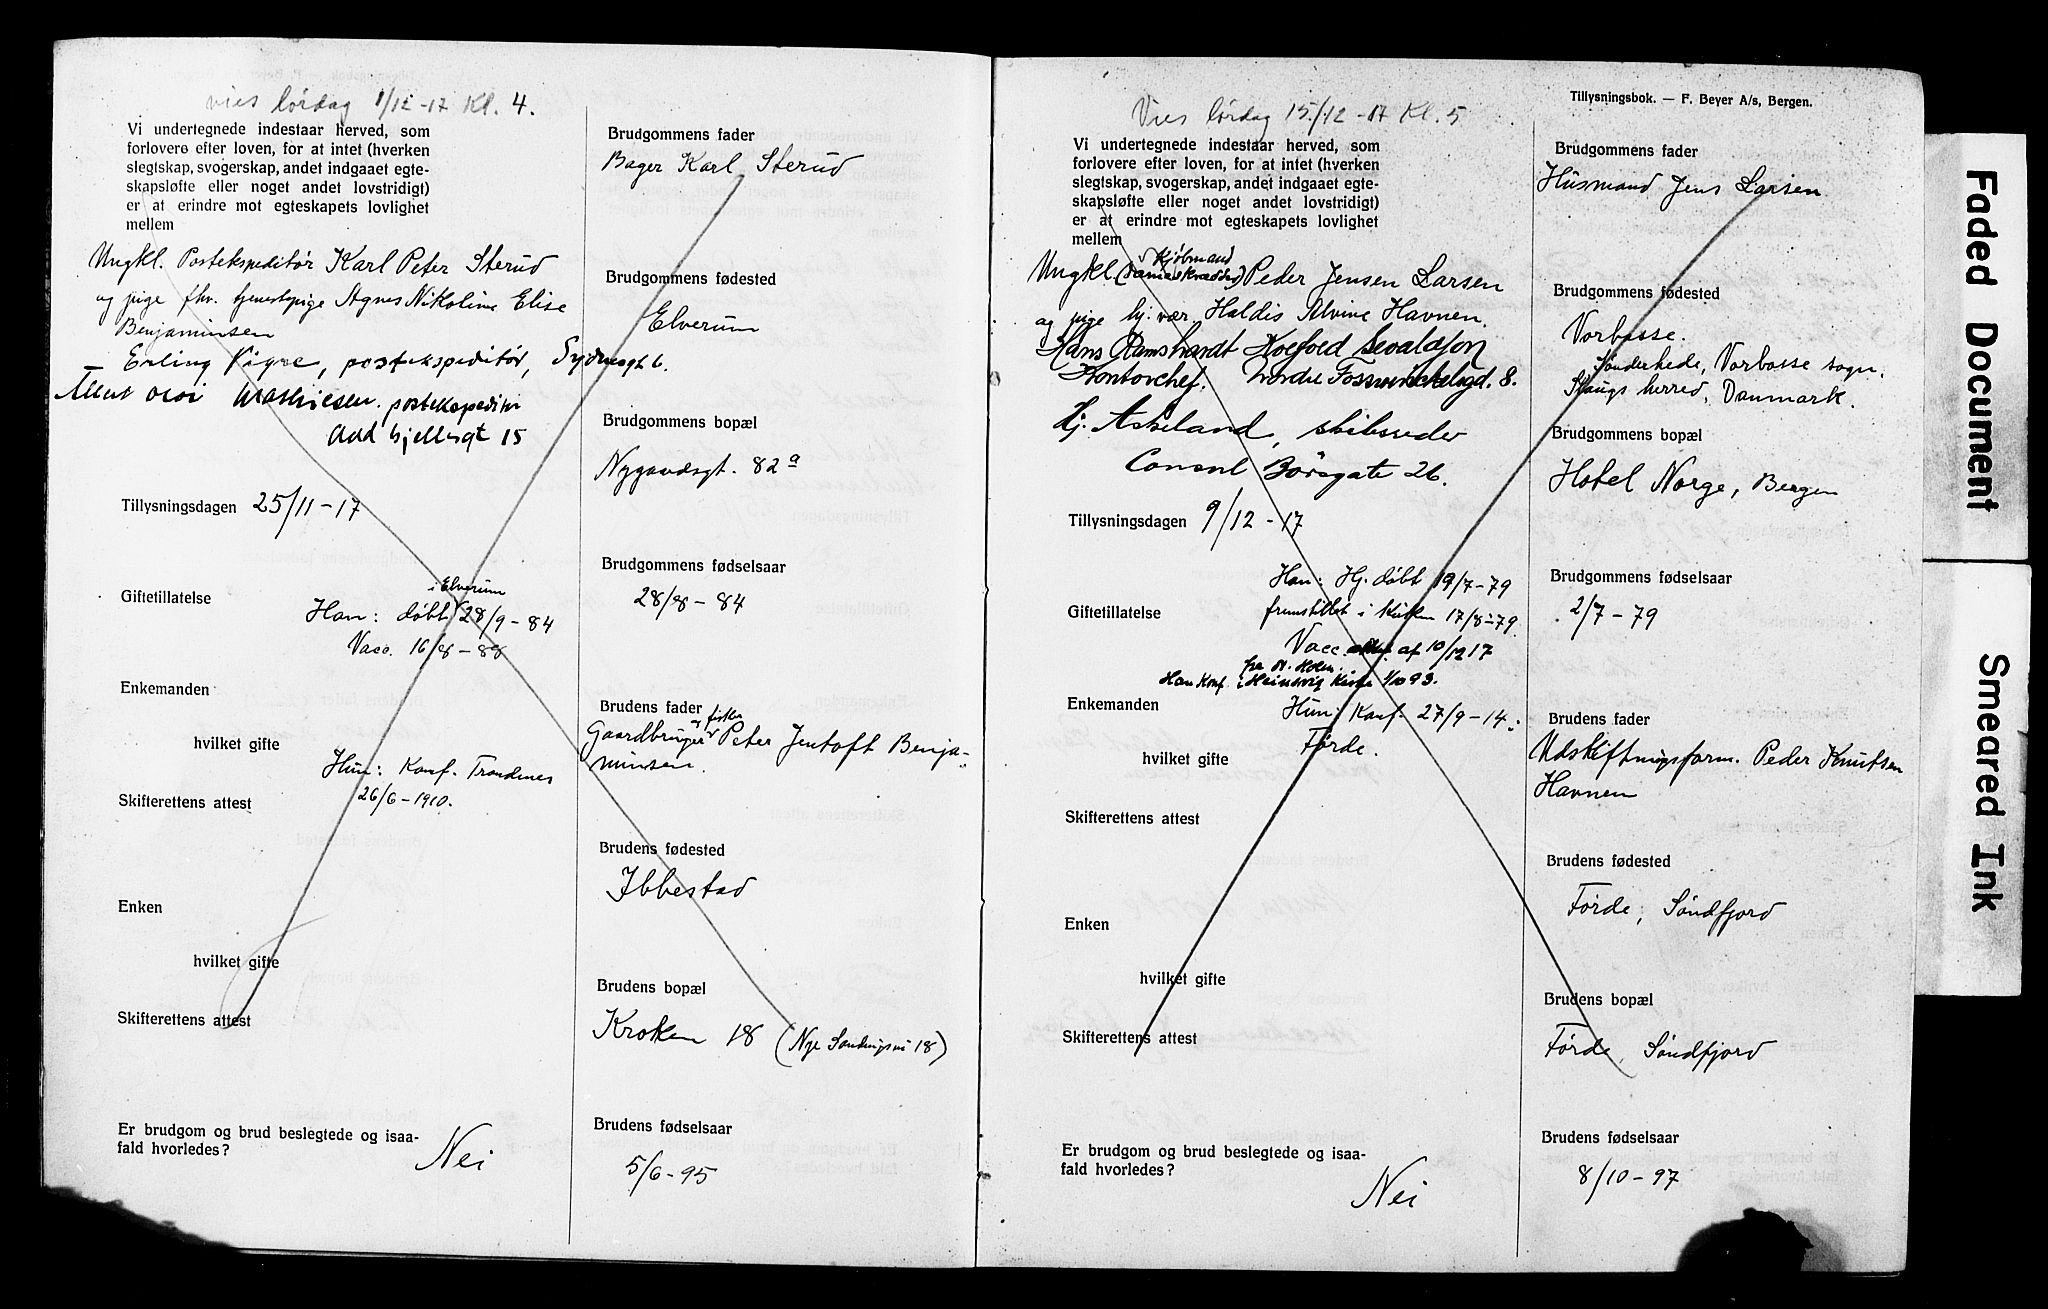 vies lørdag 1/12-17 Kl. 4.
Vi undertegnede indestaar herved, som
forlovere efter loven, for at intet (hverken
slegtskap, svogerskap, andet indgaaet egte-
skapsløfte eller noget andet lovstridigt)
er at erindre mot egteskapets lovlighet
mellem
Ungkl. Postekspeditør Karl Peter Sterud
og pige fhv. tjenestepige Agnes Nikoline Elise
Benjaminsen
Erling Vigre, postekspeditør, Sydnesgt 6.
Mathiesen. postekspeditør
Odd hjellesgt 15
Tillysningsdagen 25/11-17
Giftetillatelse
i Elverum
Han: døbt 28/9-84
Vacc. 16/8-88
Enkemanden
hvilket gifte
Hun: Konf. Trondenes
26/6-1910.
Skifterettens attest
Enken
hvilket gifte
Skifterettens attest
Er brudgom og brud beslegtede og isaa-
fald hvorledes?
Nei
Brudgommens fader
Bager Karl Sterud
Brudgommens fødested
Elverum
Brudgommens bopæl
Nygaardsgt. 82a
Brudgommens fødselsaar
28/8-84
Brudens fader
og fisker
Gaardbruger Peter Jentoft Benja-
minsen.
Brudens fødested
Ibbestad
Brudens bopæl
Kroken 18 (Nye Sandvigsvei 18)
Brudens fødselsaar
5/6-95
Vies lørdag 15/12-17 Kl. 5
Vi undertegnede indestaar herved, som
forlovere efter loven, for at intet (hverken
slegtskap, svogerskap, andet indgaaet egte-
skapsløfte eller noget andet lovstridigt)
er at erindre mot egteskapets lovlighet
mellem
Kjøbmand
Ungkl. Peder Jensen Larsen
og pige hj. vær. Haldis Alvine Havnen.
Hans Ramshardt Koefoed Sevaldson
Kontorchef. Nordre Fossvinckelsgd. 8.
Hj. Askeland, skibsreder
Consul Børsgate 26.
Tillysningsdagen 9/12-17
Han: Hj. døbt 19/7-79
Giftetillatelse
fremstillet i Kirken 17/8-79.
Vacc. attest af 10/12 17
Han Konf. i Heinsvig Kirke 1/10 93.
Enkemanden
Hun: Konf. 27/9-14.
Førde.
hvilket gifte
Skifterettens attest
Enken
hvilket gifte
Skifterettens attest
Er brudgom og brud beslegtede og isaa-
fald hvorledes?
Nei
Tillysningsbok. — F. Beyer A/s, Bergen.
Brudgommens fader
Husmand Jens Larsen
Brudgommens fødested
Vorbasse.
Sønderhede, Vorbasse sogn.
Slaugs herred, Danmark.
Brudgommens bopæl
Hotel Norge, Bergen
Brudgommens fødselsaar
2/7-79
Brudens fader
Udskiftningsform. Peder Knutsen
Havnen
Brudens fødested
Førde, Søndfjord
Brudens bopæl
Førde, Søndfjord
Brudens fødselsaar
8/10-97
Faded Document
Smeared Ink